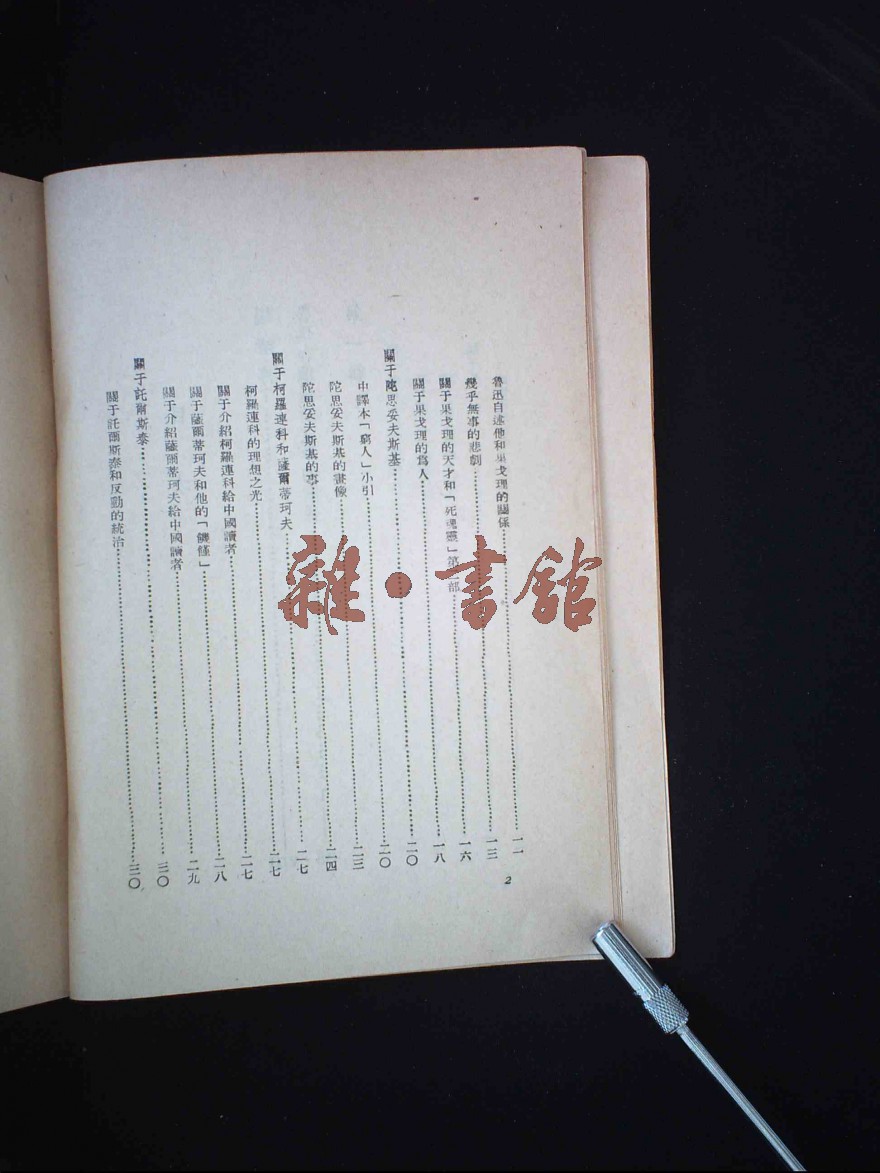 魯迅自述他和果戈理的關係……一一
幾乎無事的悲劇……一三
關于果戈理的天才和「死魂靈」第二部……一六
關于果戈理的爲人……一八
關于陀思妥夫斯基……二〇
中譯本「窮人」小引……二三
陀思妥夫斯基的畫像……二四
陀思妥夫斯基的事……二七
關于柯羅連科和薩爾蒂珂夫……二七
柯羅連科的理想之光……二七
關于介紹柯羅連科給中國讀者……二八
關于薩爾蒂珂夫和他的「饑饉」……二九
關于介紹薩爾蒂珂夫給中國讀者……三〇
關于託爾斯泰……三〇
關于託爾斯泰和反動的統治……三〇
2
雜·書館